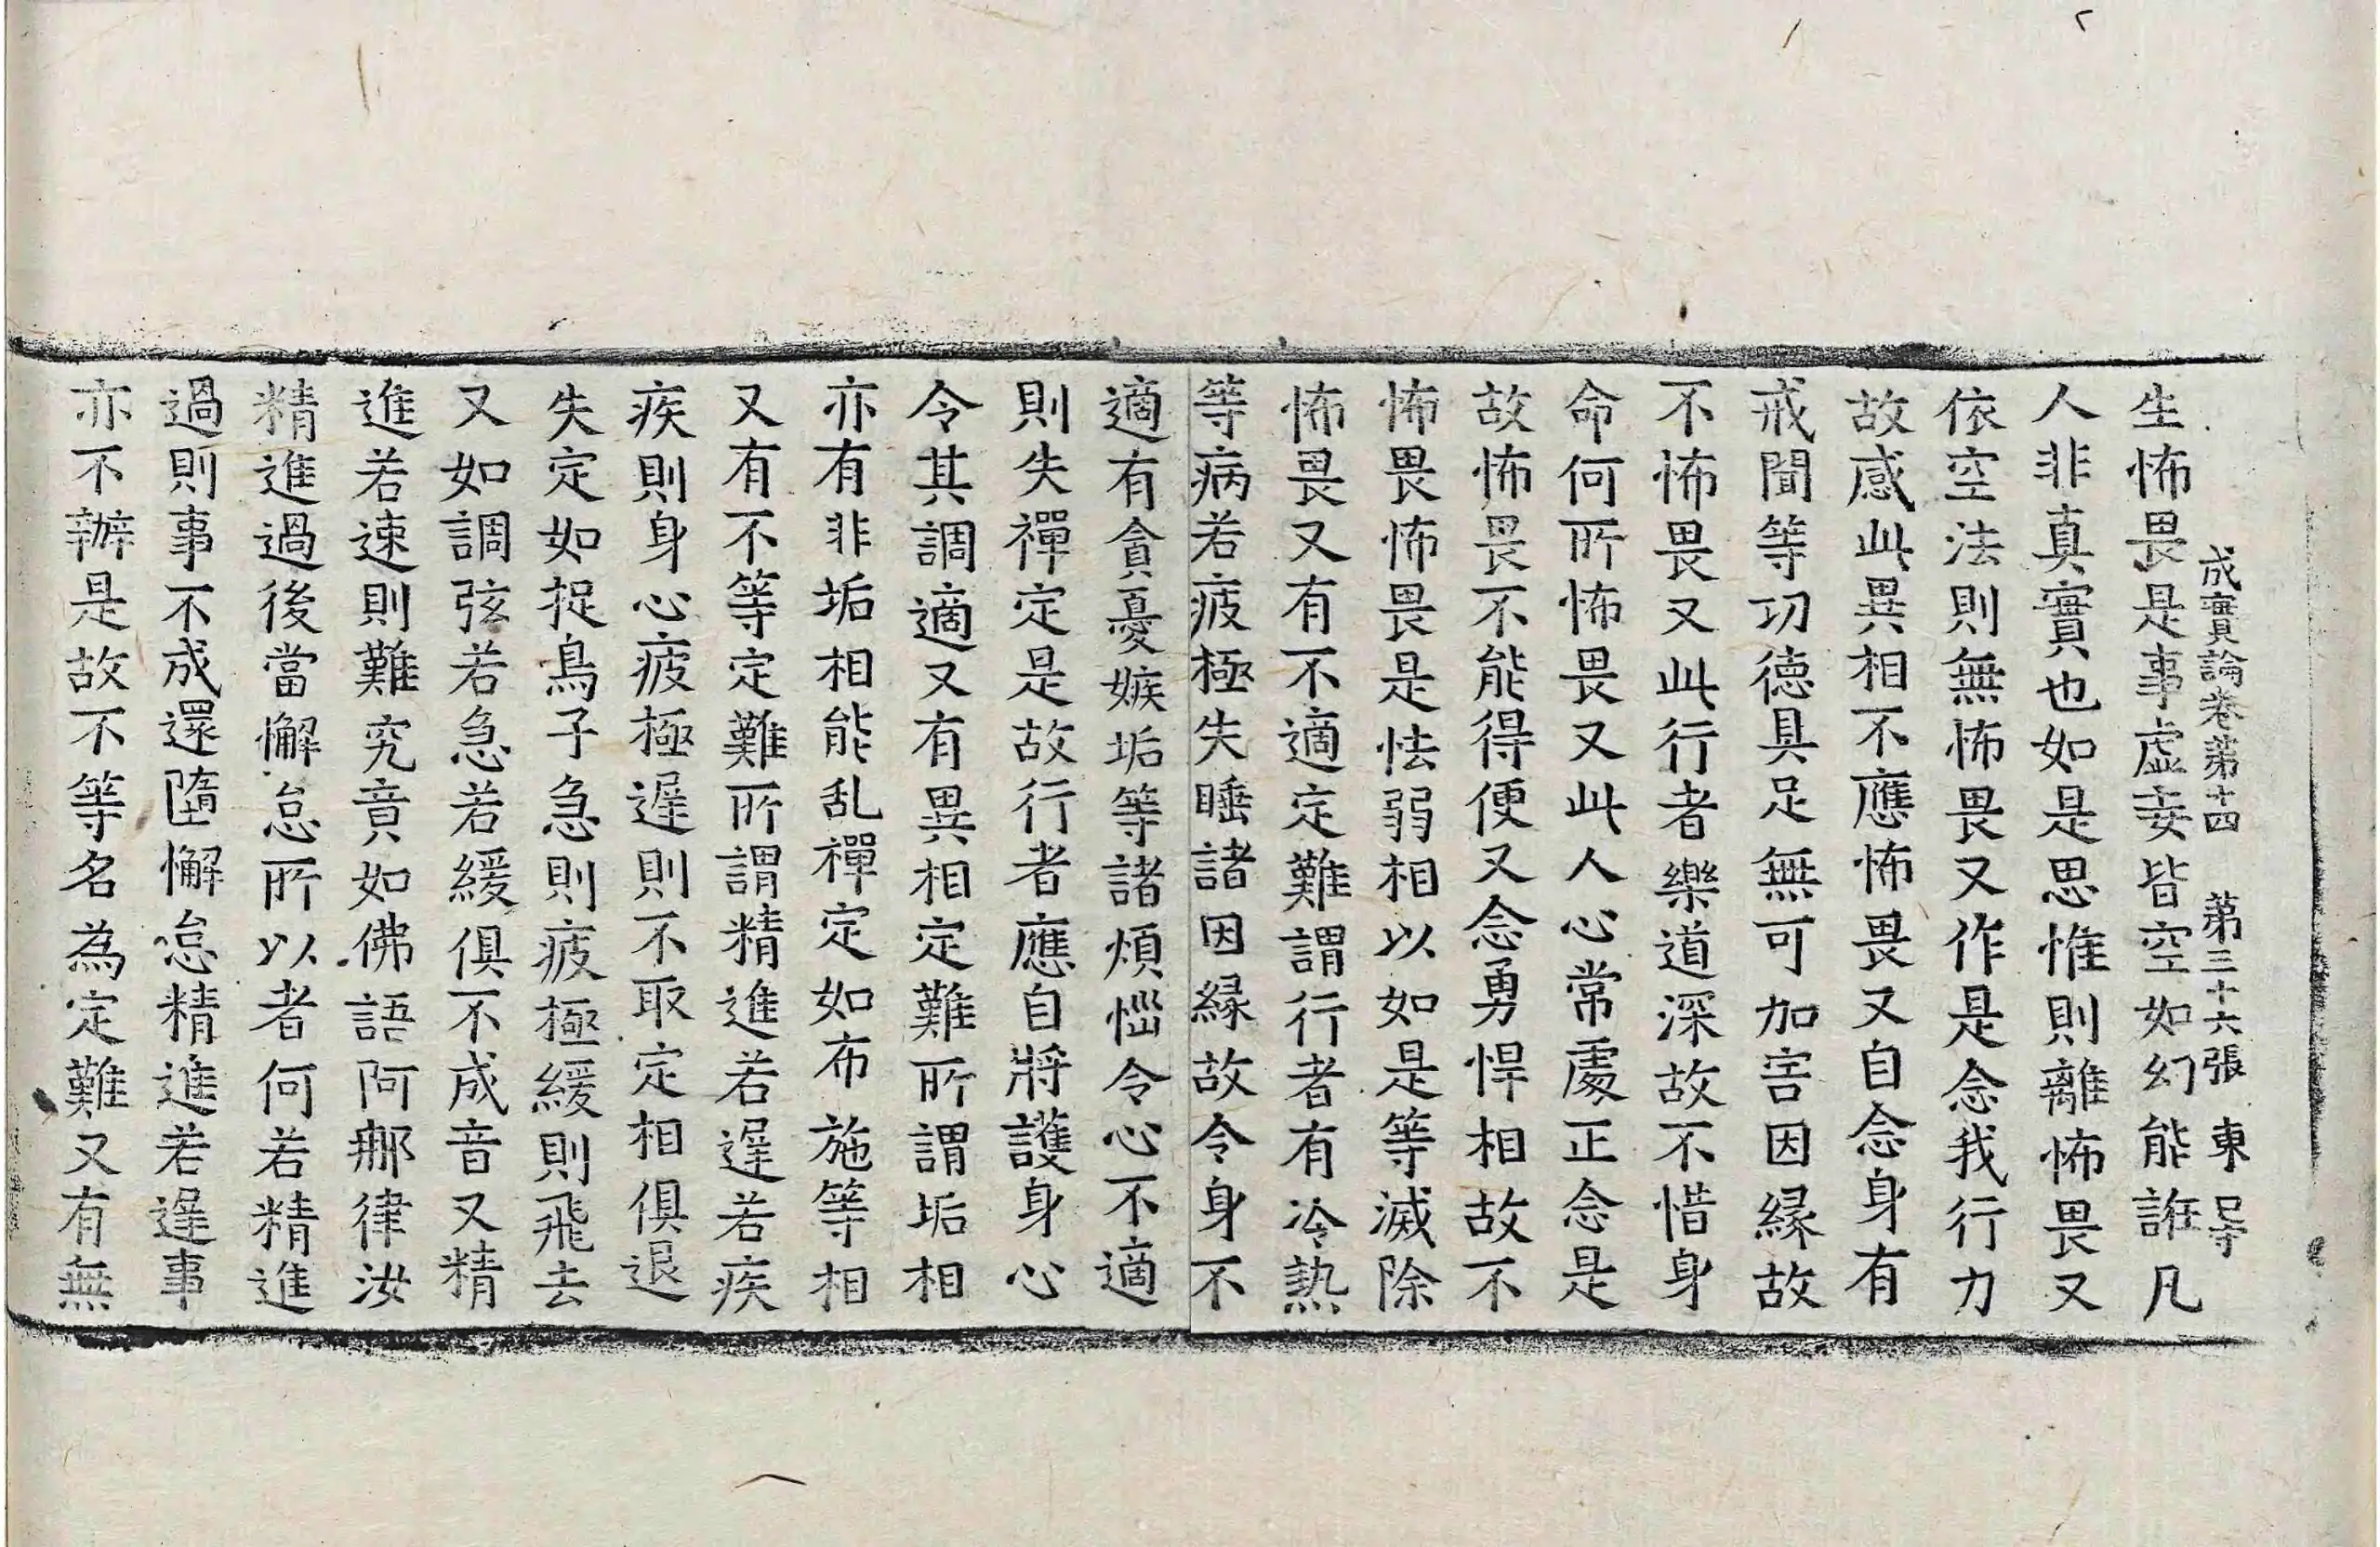 成實論卷第十四 第三十六張 東 㝵
生怖畏是事虛妄皆空如幻能誑凡
人非真實也如是思惟則離怖畏又
依空法則無怖畏又作是念我行力
故感此異相不應怖畏又自念身有
戒聞等功德具足無可加害因縁故
不怖畏又此行者樂道深故不惜身
命何所怖畏又此人心常處正念是
故怖畏不能得便又念勇悍相故不
怖畏怖畏是怯弱相以如是等滅除
怖畏又有不適定難謂行者有冷熱
等病若疲極失睡諸因縁故令身不
適有貪憂嫉垢等諸煩惱令心不適
則失禪定是故行者應自將護身心
令其調適又有異相定難所謂垢相
亦有非垢相能乱禪定如布施等相
又有不等定難所謂精進若遲若疾
疾則身心疲極遲則不取定相俱退
失定如捉鳥子急則疲極緩則飛去
又如調弦若急若緩俱不成音又精
進若速則難究竟如佛語阿那律汝
精進過後當懈怠所以者何若精進
過則事不成還墮懈怠精進若遲事
亦不辦是故不等名為定難又有無